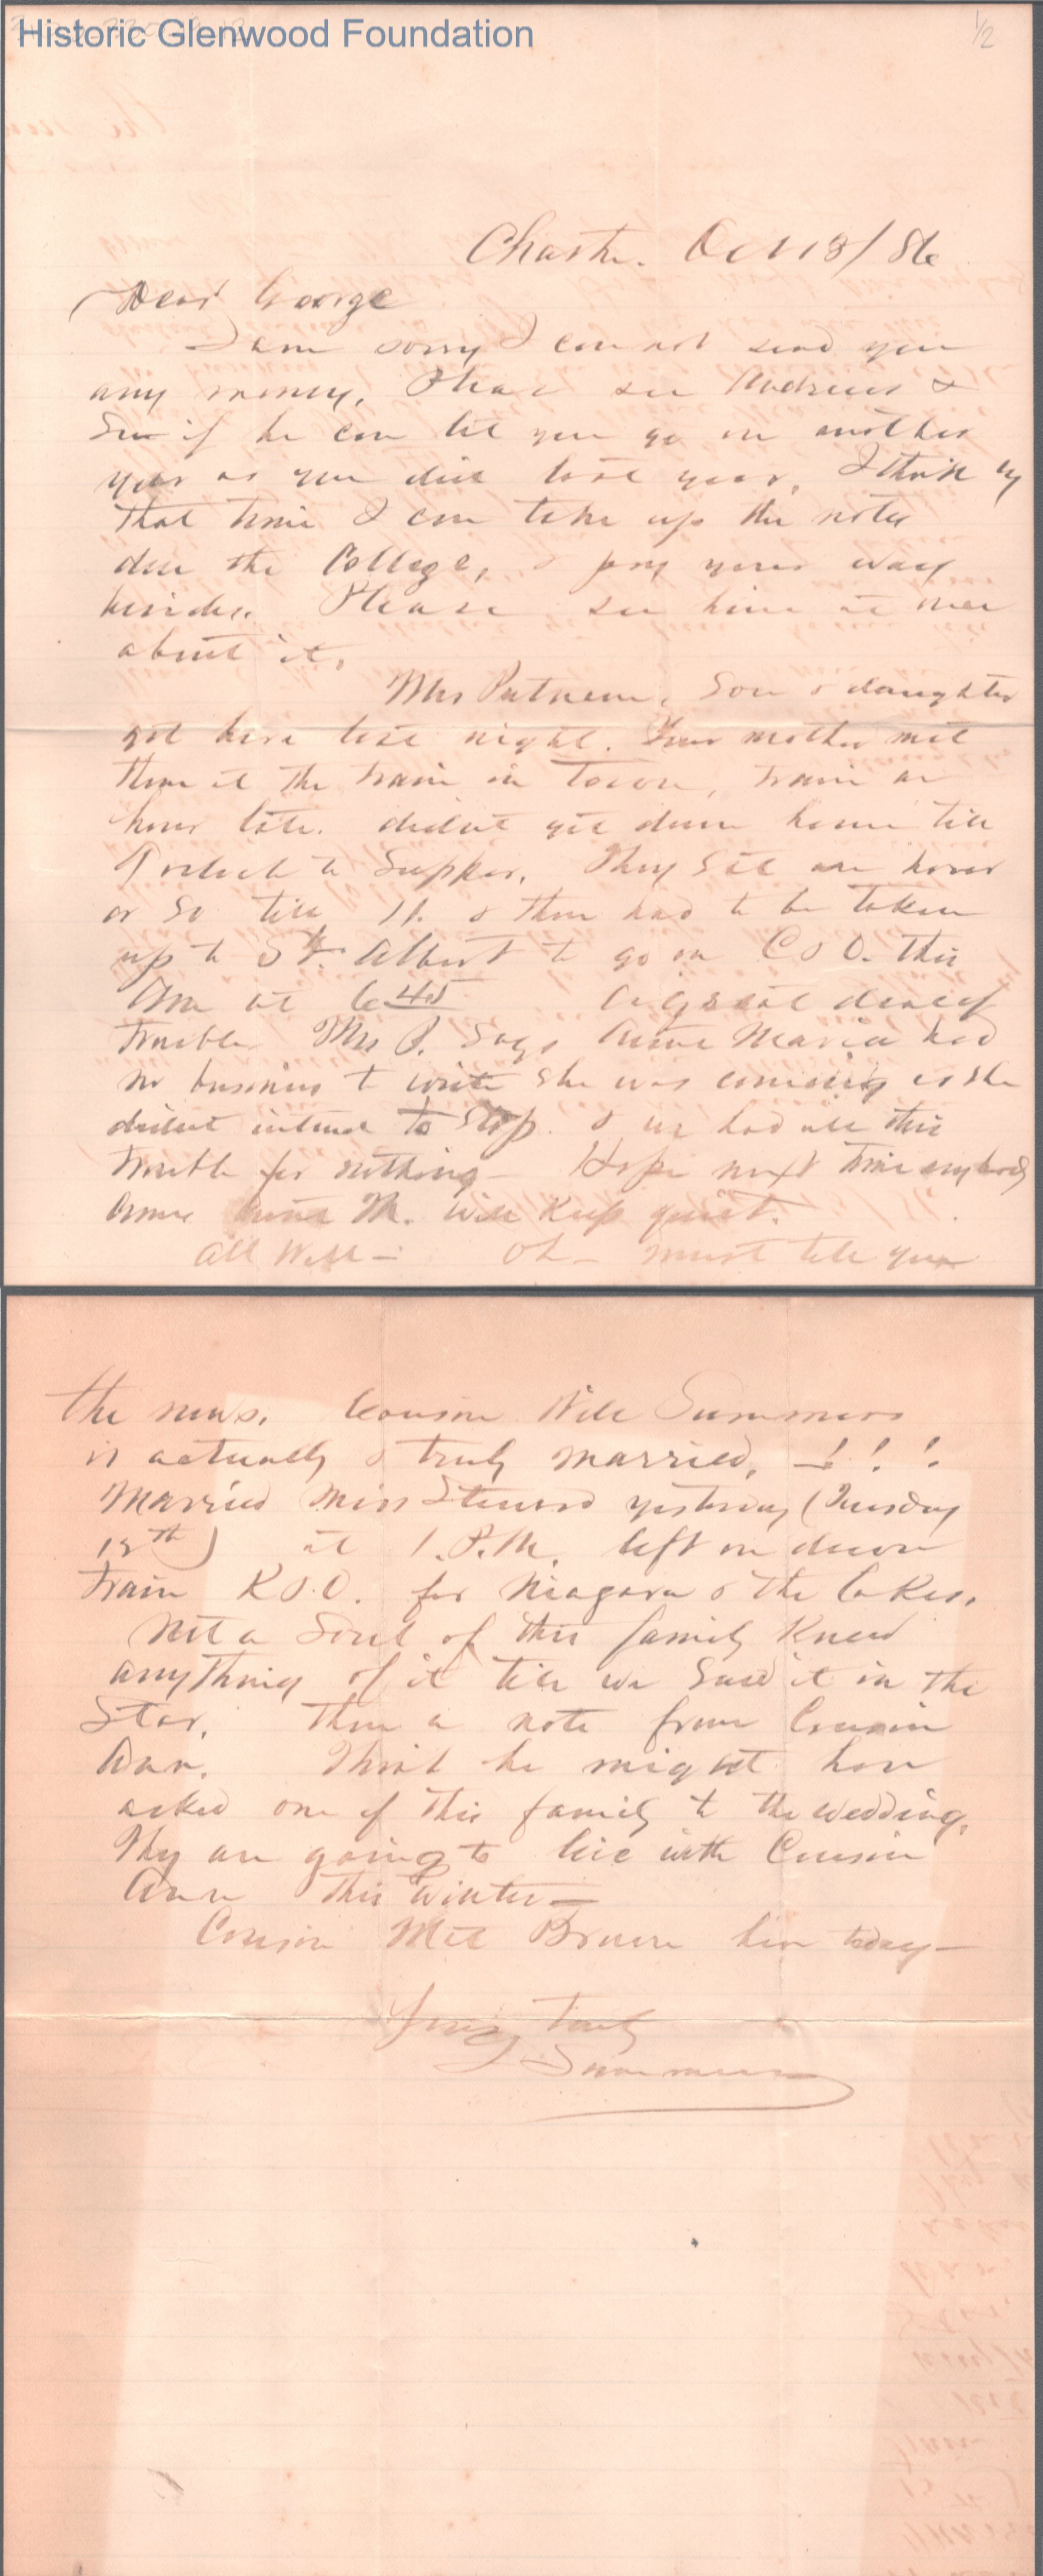 Historic Glenwood Foundation
1/2
Chasth. Oct 13/86
Dear George
I am sorry I can not send you
any money. Please see Andrews &
See if he can let you go on another
year as you did last year. I think by
that time I can take up the notes
due the College, & pay your way
besides. Please see him at once
about it.
Mrs Putnam, Son & daughter
got here last night. Your mother met
them at the train in Town, train an
hour late. didnt get down home till
9 oclock to Supper. They Sat an hour
or So till 11. & then had to be taken
up to St. Albert to go on C & O. this
Am at 6 45 a great deal of
trouble Mrs P. Says Aunt Maria had
no business to write She was coming as She
didnt intend to Stop. & we had all this
trouble for nothing - Hope next time anybody
comes Aunt M. will Keep quiet.
All Well - Oh - must tell you
the news. Cousin Will Summers
is actually & truly married, - ! ! !
Married Miss Steward yesterday (Tuesday
12th) at 1. P.M. left on down
train K & O. for Niagara & the Lakes.
Not a Soul of this family Knew
anything of it till we Saw it in the
Star. Then a note from Cousin
Ann. Think he might have
asked one of this family to the wedding.
They are going to live with Cousin
Ann this Winter -
Cousin Met Brown here today -
Yours Truly
Summers